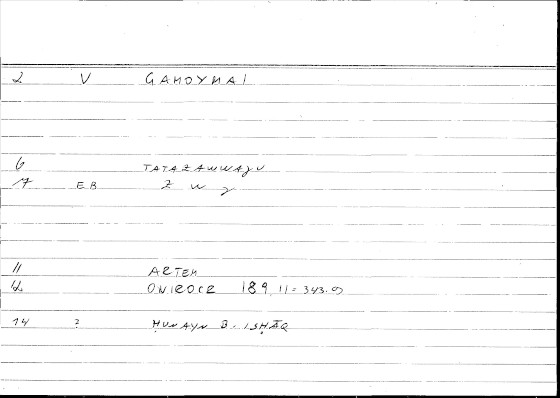 2 V GAMOYMAI
6 TATAZAWWAǧU
7 EB Z W ǧ
11 ARTEM
12 ONIROCR 189,11 = 343.9
14 ? ḤUNAYN B. ISḤĀQ